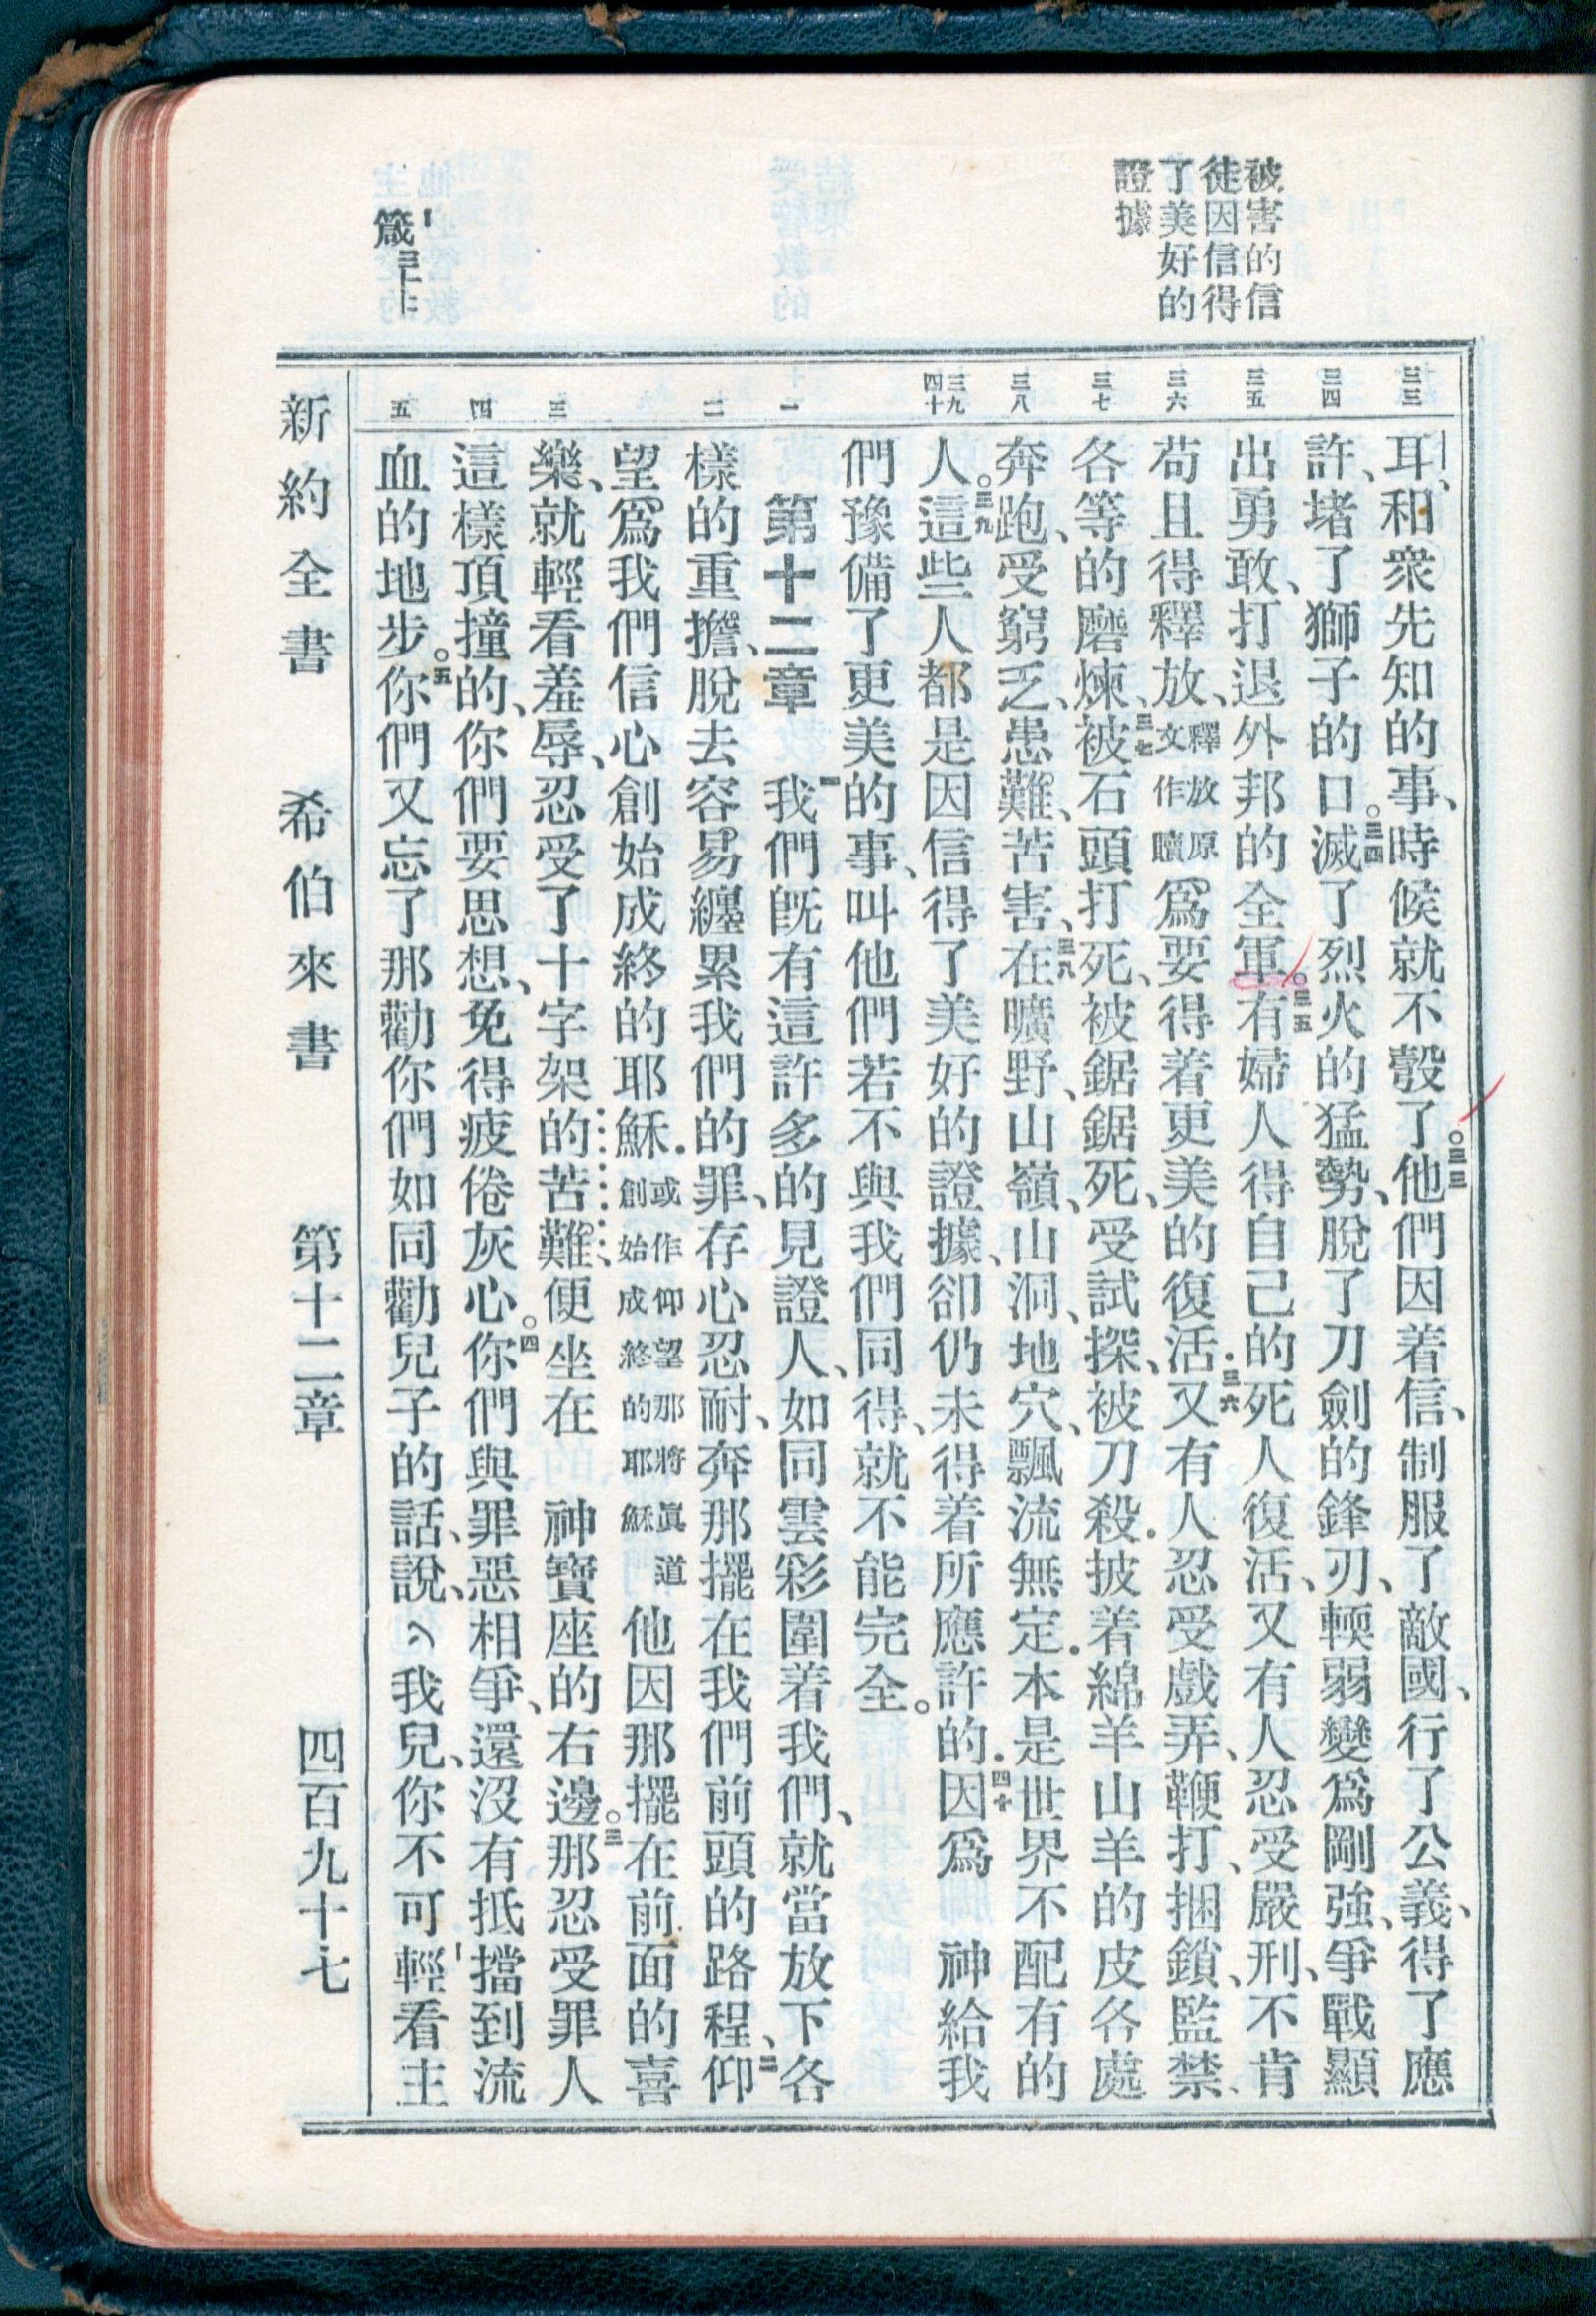 被害的信
徒因信得
了美好的
證據
箴三十一
三三
三四
三五
三六
三七
三八
三九
四十
一
二
三
四
五
耳、和衆先知的事、時候就不彀了。三三他們因着信、制服了敵國、行了公義、得了應
許、堵了獅子的口。三四滅了烈火的猛勢、脫了刀劍的鋒刃、輭弱變爲剛強、爭戰顯
出勇敢、打退外邦的全軍。三五有婦人得自己的死人復活、又有人忍受嚴刑、不肯
苟且得釋放、釋放原文作贖爲要得着更美的復活.三六又有人忍受戲弄、鞭打、捆鎖、監禁、
各等的磨煉、三七被石頭打死、被鋸鋸死、受試探、被刀殺.披着綿羊山羊的皮各處
奔跑、受窮乏、患難、苦害、三八在曠野、山嶺、山洞、地穴、飄流無定.本是世界不配有的
人。三九這些人都是因信得了美好的證據、卻仍未得着所應許的.四十因爲　神給我
們豫備了更美的事、叫他們若不與我們同得、就不能完全。
第十二章　一我們旣有這許多的見證人、如同雲彩圍着我們、就當放下各
樣的重擔、脫去容易纏累我們的罪、存心忍耐、奔那擺在我們前頭的路程、二仰
望爲我們信心創始成終的耶穌.或作仰望那將眞道創始成終的耶穌他因那擺在前面的喜
樂、就輕看羞辱、忍受了十字架的苦難、便坐在　神寶座的右邊。三那忍受罪人
這樣頂撞的、你們要思想、免得疲倦灰心。四你們與罪惡相爭、還沒有抵擋到流
血的地步。五你們又忘了那勸你們如同勸兒子的話、說、我兒、你不可輕看主
新約全書　希伯來書　第十二章　四百九十七